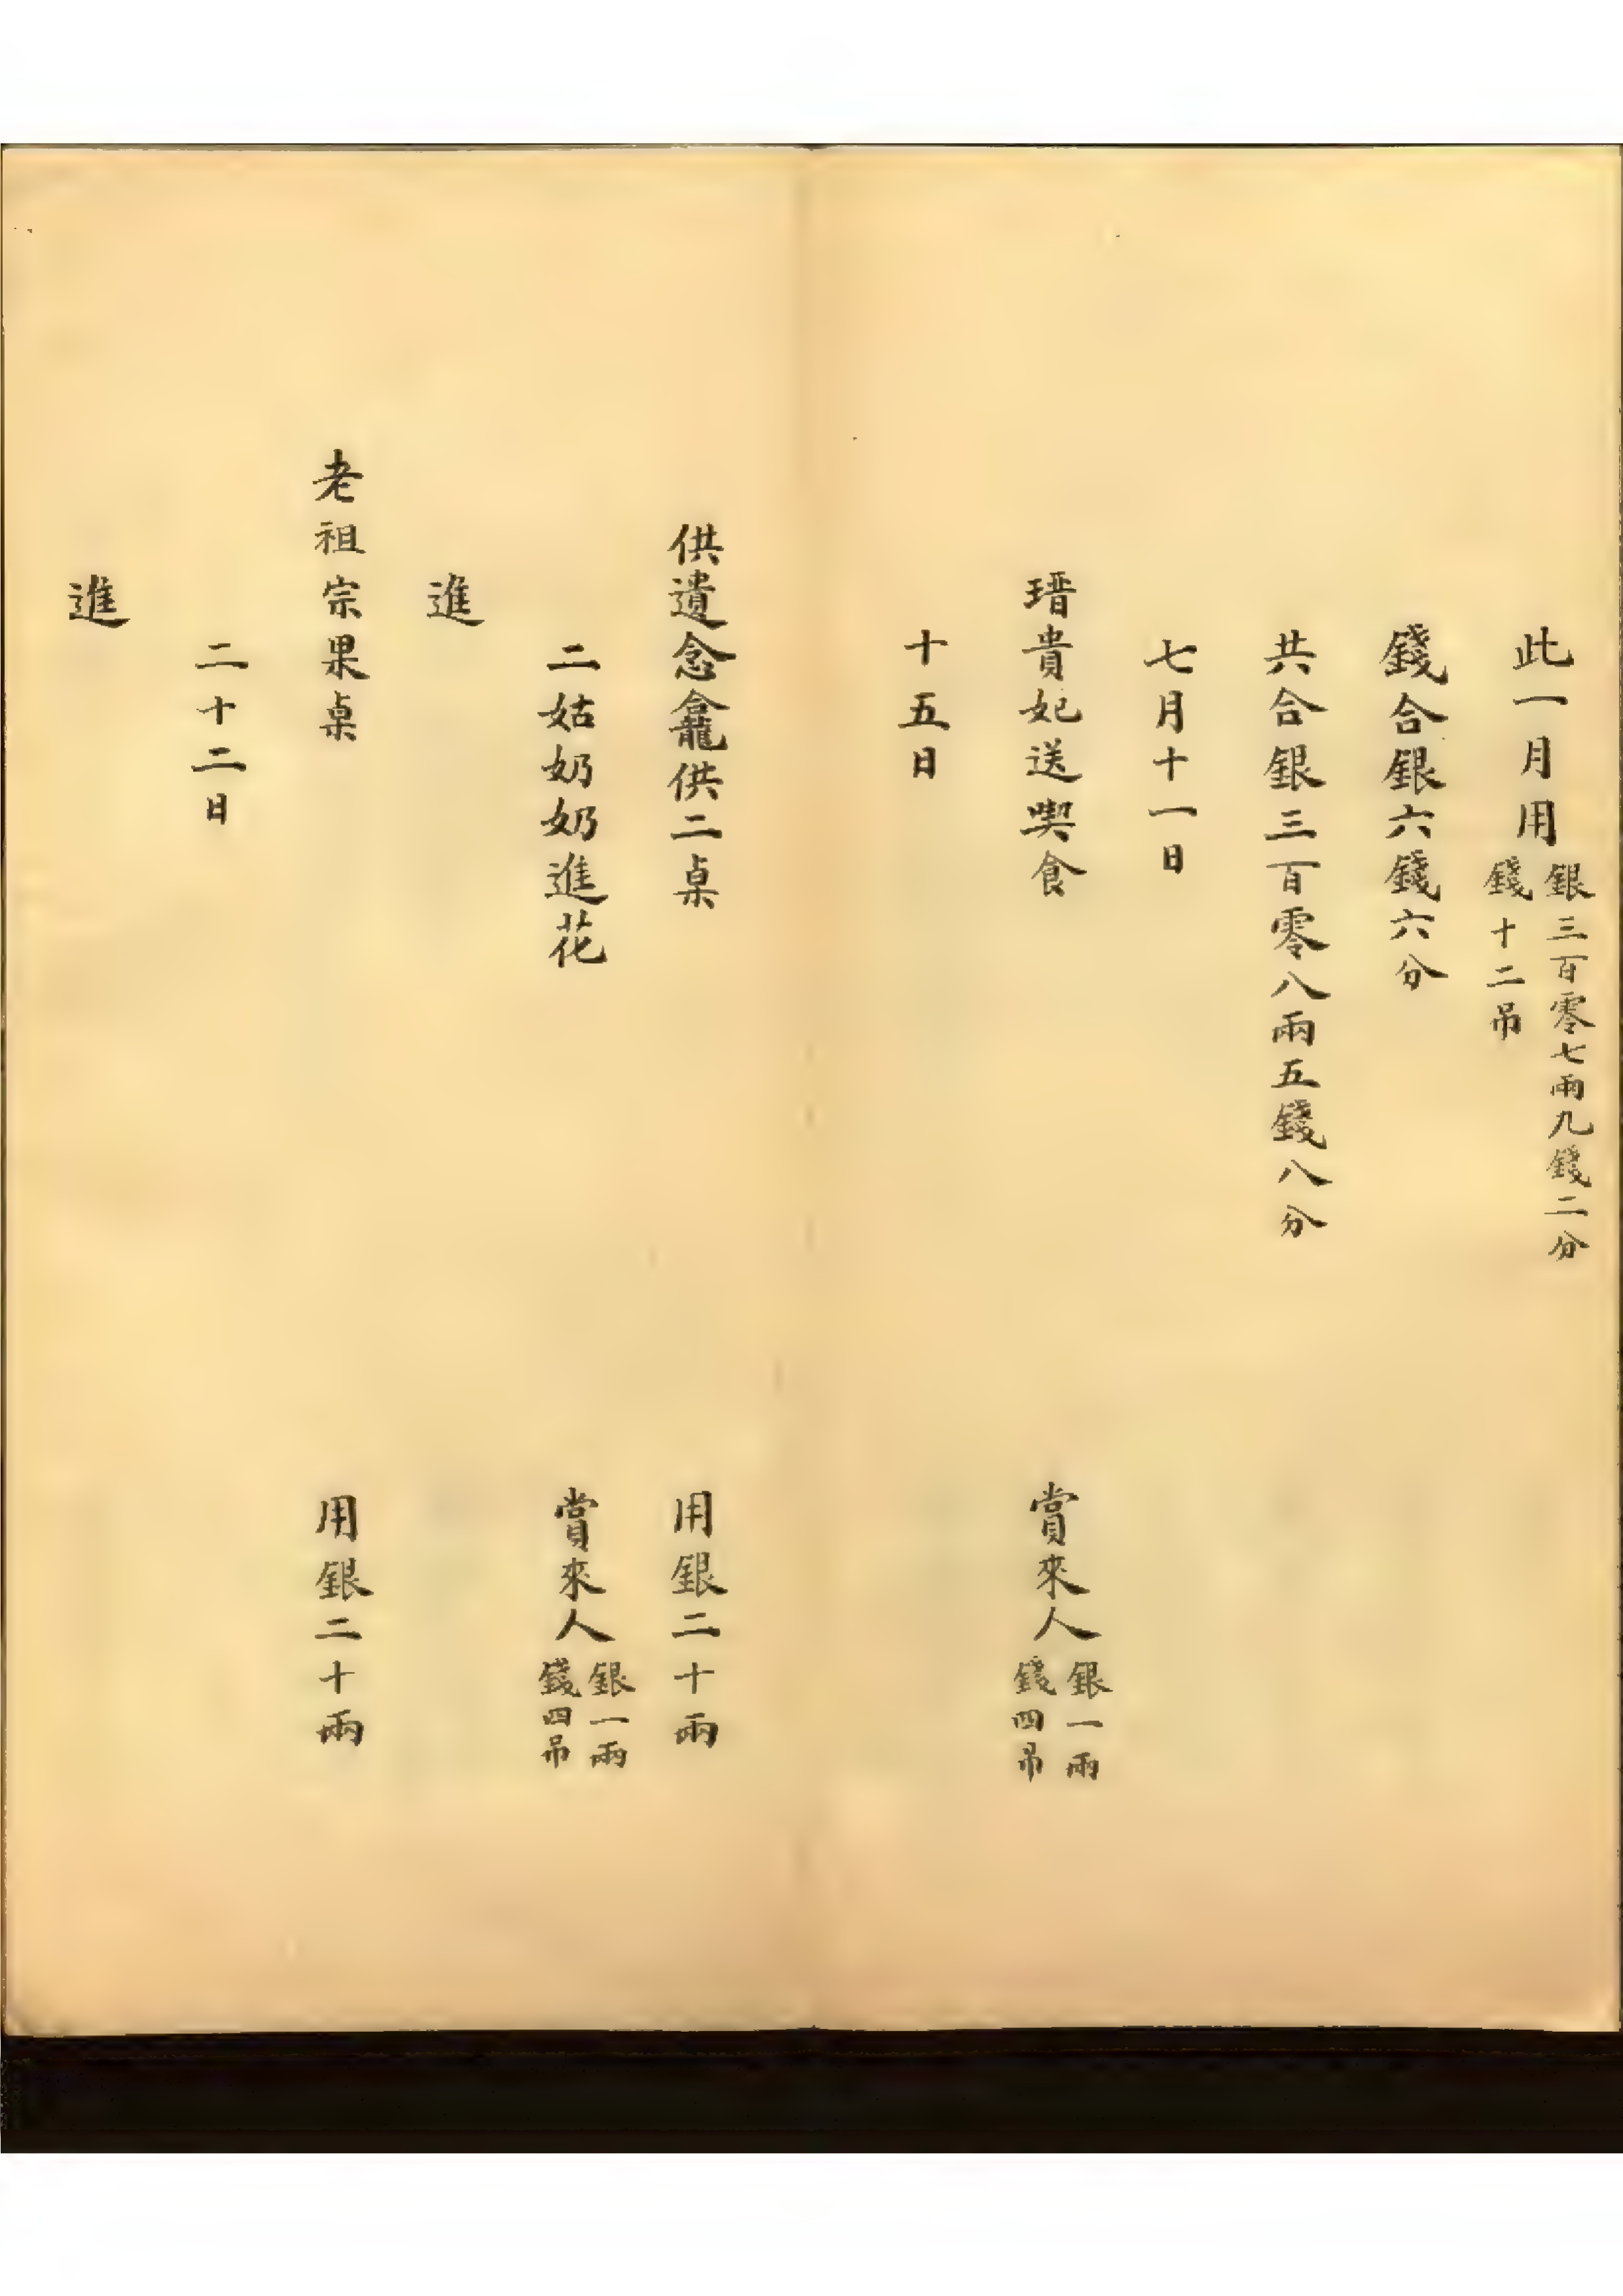 此一月用銀三百零七兩九錢二分
錢十二吊
錢合銀六錢六分
共合銀三百零八兩五錢八分
七月十一日
瑨貴妃送喫食
賞來人銀一兩
錢四吊
十五日
供遺念龕供二桌
用銀二十兩
二姑奶奶進花
賞來人銀一兩
錢四吊
進
老祖宗果桌
用銀二十兩
二十二日
進